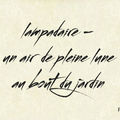 lampadaire –
un air de pleine lune
au bout du jardin